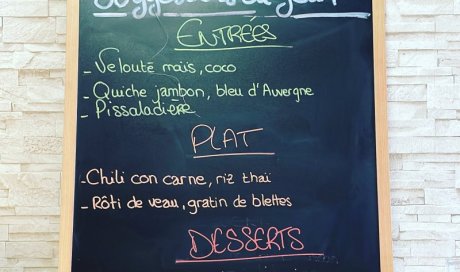 Suggestions du jour
ENTRÉES
- Velouté maïs, coco
- Quiche jambon, bleu d'Auvergne
- Pissaladière
PLAT
- Chili con carne, riz thaï
- Rôti de veau, gratin de blettes
DESSERTS